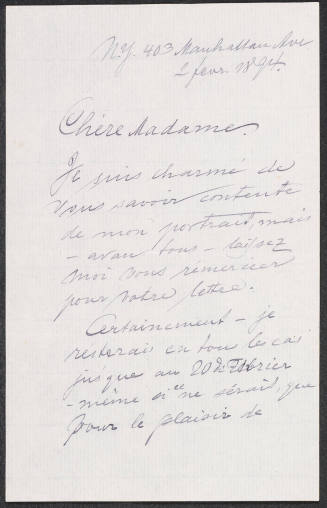 N.Y. 403 Manhattan Ave
2 fevr. 1894.
Chère Madame.
Je suis charmé de
vous savoir contente
de mon portrait, mais
- avan tous - laissez
moi vous rémercier
pour votre lettre.
Certainement - je
resterais en tous le cas
jusque au 20 d. Fébrier
- même si ce ne sérait, que
pour le plaisir de